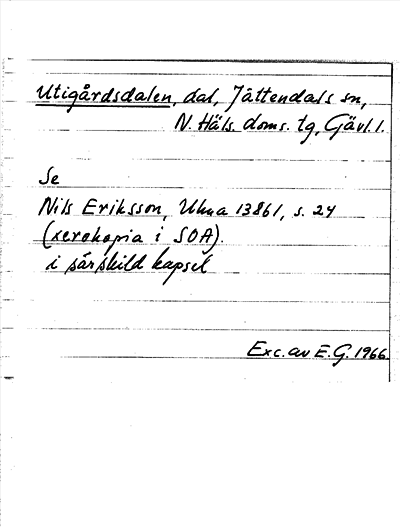 Utigårdsdalen, dal, Jättendals sn,
N. Häls. doms. tg, Gävl. l.
Se
Nils Eriksson, Ulma 13861, s. 24
(xerokopia i SOA).
i särskild kapsel
Exc. av E.G. 1966.